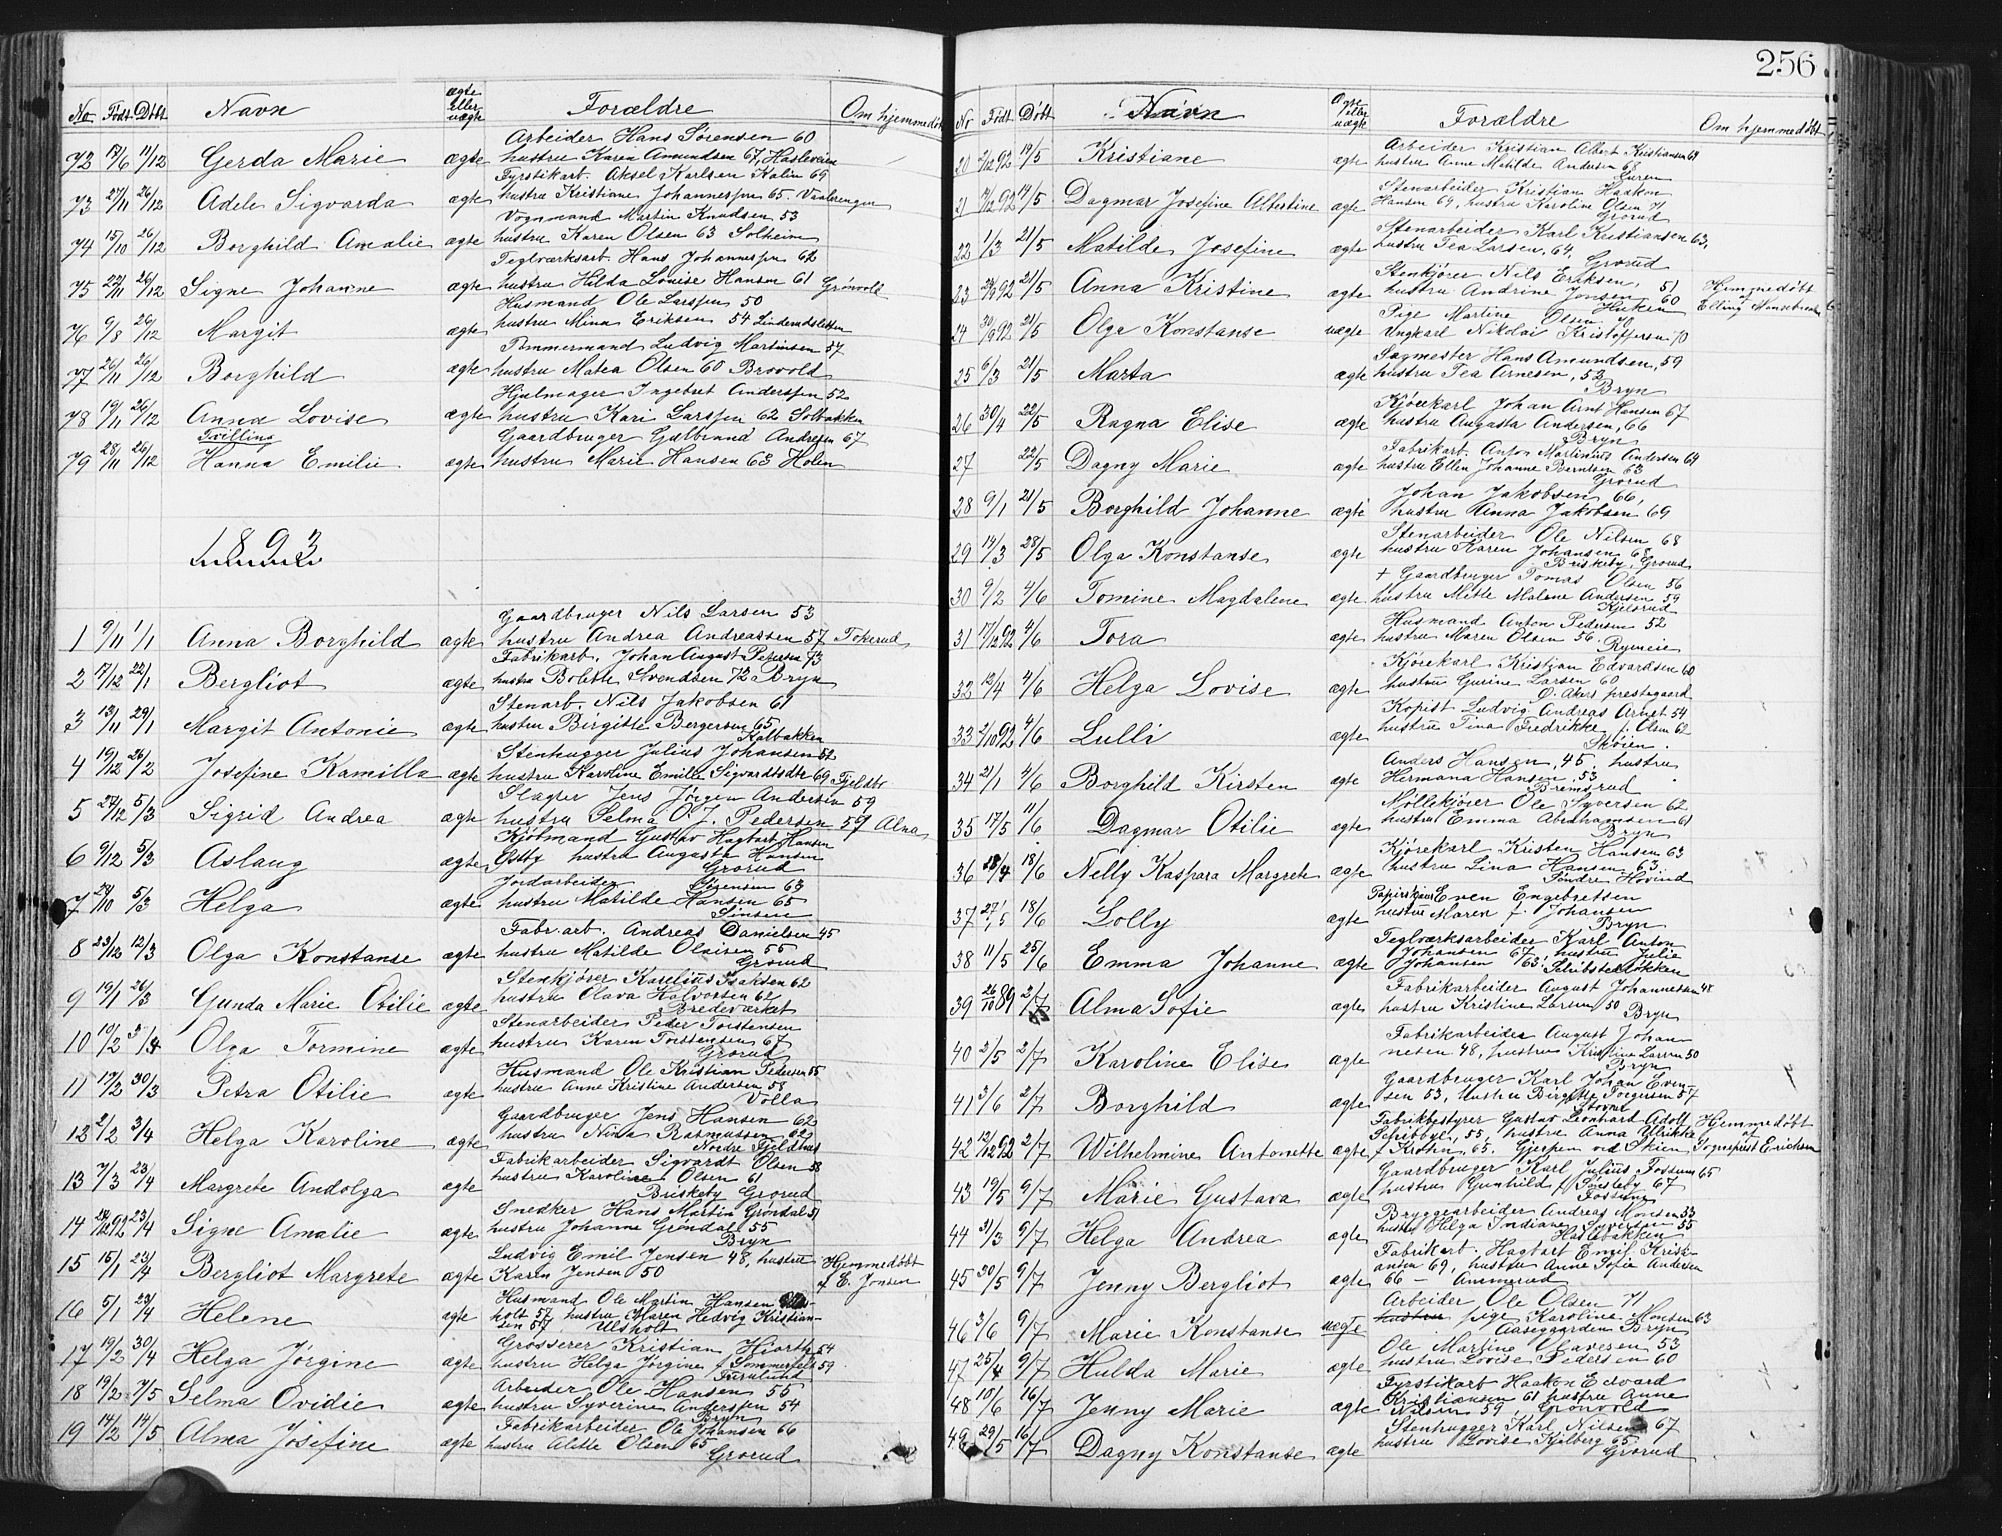 256
No Født Døbt Navn ægte eller uægte Forældre Om hjemmedøbt
Arbeider Hans Sørensen 60
72 11/12 Gerda Marie ægte hustru Karen Amundsen 67, Hasleveien
Fyrstikarb. Aksel Karlsen Kolin 69
73 27/11 26/12 Adele Sigvarda ægte hustru Kristiane Johannesen 65. Vaalerengen
Vognmand Martin Knudsen 53
74 15/10 26/12 Borghild Amalie ægte hustru Karen Olsen 63 Solheim
Teglværksarb. Hans Johannesen 62
75 22/11 26/12 Signe Johanne ægte hustru Hilda Louise Hansen 61 Grønvold
Husmand Ole Larssen 50
76 9/8 26/12 Margit ægte hustru Mina Eriksen 54 Linderudsletten
Tømmermand Ludvig Martinsen 57
77 26/11 26/12 Borghild ægte hustru Matea Olsen 60 Brovold
Hjulmager Ingebret Anderssen 52
78 19/11 26/12 Anna Lovise ægte hustru Kari Larssen 62 Solbakken
Tvilling Gaardbruger Gulbrand Andresen 67
79 28/11 26/12 Hanna Emilie ægte hustru Marie Hansen 63 Holen
1893
Gaardbruger Nils Larsen 53
1 9/11 1/1 Anna Borghild ægte hustru Andrea Andreassen 57 Tokerud
Fabrikarb. Johan August Petersen 73
2 17/12 22/1 Bergliot ægte hustru Bolette Svendsen 72 Bryn
Stenarb. Nils Jakobsen 61
3 13/11 29/1 Margit Antonie ægte hustru Birgitte Bergersen 65
Kalbakken
Stenhugger Julius Johansen 52
4 19/12 26/2 Josefine Kamilla ægte hustru Karoline Emilie Sigvardtsdtr 69
Slagter Jens Jørgen Andersen 59
5 27/12 5/3 Sigrid Andrea ægte hustru Selma O. J. Pedersen 59 Alna
Kjørmand Gustav Hagbart Hansen
6 9/12 5/3 Aslaug ægte Østby hustru Augusta Hansen
Grorud
Jordarbeider Sørensen 63
7 29/10 5/3 Helga ægte hustru Matilde Hansen 65
Sinsen
Fabr.arb. Andreas Danielsen 45
8 23/12 12/3 Olga Konstanse ægte hustru Matilde Olaisen 55
Grorud
Stenkjører Karelius Isaksen 62
9 19/1 26/3 Gunda Marie Otilie ægte hustru Olava Halvorsen 62
Bredeværket
Stenarbeider Peder Torstensen
10 19/2 3/4 Olga Tormine ægte hustru Karen Torstensen 67
Grorud
Husmand Ole Kristian Pedersen 55
11 17/2 30/3 Petra Otilie ægte hustru Anne Kristine Andersen 58
Volla
Gaardbruger Jens Hansen 62
12 2/2 3/4 Helga Karoline ægte hustru Nina Rasmussen 62
Nordre Fjeldhus
Fabrikarbeider Sigvardt Olsen 58
13 7/3 23/4 Margrete Andolga ægte hustru Karoline Olsen 61
Briskeby Grorud
Snedker Hans Martin Grøndal 51
14 24/12 92 23/4 Signe Amalie ægte hustru Johanne Grøndal 55
Bryn
Ludvig Emil Jensen 48, hustru Hjemmedøbt
15 15/1 23/4 Bergliot Margrete ægte Karen Jensen 50 af E. Jonsen
Husmand Ole Martin Hansen
16 5/1 23/4 Helene ægte holt 57, hustru Maren Hedvig Kristian-
sen 57, Ulsholt
Grosserer Kristian Hiorth 54
17 19/2 30/4 Helga Jørgine ægte hustru Helga Jørgine f. Sommerfelt 59
Furulund
Arbeider Ole Hansen 55
18 19/2 7/5 Selma Ovidie ægte hustru Syverine Anderssen 54
Bryn
Fabrikarbeider Ole Johansen 66
19 14/2 14/5 Alma Josefine ægte hustru Alette Olsen 65
Grorud
No Født Døbt Navn Ægte eller uægte Forældre Om hjemmedøbt
Arbeider Kristian Albert Kristiansen 69
20 2/12 92 14/5 Kristiane ægte hustru Anne Matilde Andersen 68
Furen
Stenarbeider Kristian Haakon
21 14/12 92 14/5 Dagmar Josefine Albertine ægte Hansen 69, hustru Karoline Olsen 71
Grorud
Stenarbeider Karl Kristiansen 63,
22 1/3 21/5 Matilde Josefine ægte hustru Tea Larsen, 64,
Grorud
Stenkjører Nils Eriksen, 51 Hjemmedøbt
23 92 21/5 Anna Kristine ægte hustru Andrine Jonsen 60 af
Huken Elling Mansebakk
Pige Martine Olsen 71
24 30/9 92 21/5 Olga Konstanse uægte Ungkarl Nikolai Kristoffersen 70
Sagmester Hans Amundsen, 59
25 6/3 21/5 Marta ægte hustru Tea Arnesen, 52
Bryn
Kjørekarl Johan Arnt Hansen 67
26 30/4 22/5 Ragna Elise ægte hustru Augusta Andersen, 66
Bryn
Fabrikarb. Anton Martinius Andersen 64
27 22/5 Dagny Marie ægte hustru Ellen Johanne Berntsen 63
Grorud
Johan Jakobsen 66,
28 9/1 21/5 Borghild Johanne ægte hustru Anna Jakobsen 69
Stenarbeider Ole Nilsen 68
29 14/3 28/5 Olga Konstanse ægte hustru Karen Johansen 68
Briskeby, Grorud
+ Gaardbruger Tomas Olsen 56
30 9/2 4/6 Tomine Magdalene ægte hustru Mette Malene Andersen 59
Kjelsrud
Husmand Anton Pedersen 52
31 17/12 92 4/6 Tora ægte hustru Maren Olsen 56.
Rymeie
Kjørekarl Kristian Edvardsen 60
32 12/4 4/6 Helga Lovise ægte hustru Gurine Larsen 60
Ø. Akers prestegaard
Kopist Ludvig Andreas Arnet 54
33 2/10 92 4/6 Lulli ægte hustru Tina Fredrikke f. Olsen 62
Skøien.
Anders Hansen, 45, hustru
34 21/1 4/6 Borghild Kirsten ægte Hermana Hansen, 53
Bremsrud
Møllekjører Ole Syversen 62
35 17/5 11/6 Dagmar Otilie ægte hustru Emma Abrahamsen 61
Bryn
Kjørekarl Kristen Hansen 63
36 28/4 18/6 Nelly Kaspara Margrete ægte hustru Lina Hansen 63
Søndre Hovind
Even Engebretsen
37 27/5 18/6 Lolly ægte hustru Maren f. Johansen
Bryn
Teglværksarbeider Karl Anton
38 11/5 25/6 Emma Johanne ægte Johansen 67, hustru Julie
Johansen 63, Schibsteløkken
Fabrikarbeider August Johannessen 48
39 26/10 89 2/7 Alma Sofie ægte hustru Kristine Larsen 50
Bryn
Fabrikarbeider August Johan
40 2/5 2/7 Karoline Elise ægte nesen 48, hustru Kristine Larsen 50
Bryn
Gaardbruger Karl Johan Even-
41 3/6 2/7 Borghild ægte sen 53, hustru Birgitte Torgersen 57
Stovne
Fabrikbestyrer Gustav Leonhard Adolf Hjemmedøbt
Schibbye, 55, hustru Anna Ulrikke af
42 12/12 92 2/7 Wilhelmine Antonette ægte f. Krohn, 65. Gjerpen ved Skien Sognepræst Erichsen
Gaardbruger Karl Julius Fossum 65
43 19/5 9/7 Marie Gustava ægte hustru Gunhild f. Smeby 67
Fossum
Bryggearbeider Andreas Monsen 53
44 31/3 9/7 Helga Andrea ægte hustru Helga Indiane Syversen 55
Haslebakken
Fabrikarb. Hagbart Emil Krist-
45 30/5 9/7 Jenny Bergliot ægte ansen 69, hustru Anne Sofie Andersen
66 — Ammerud
Arbeider Ole Olsen 71
46 3/6 9/7 Marie Konstanse uægte hustru pige Karoline Monsen 63
Aaseggarden Bryn
Ole Martino Olaversen 53
47 25/4 9/7 Hulda Marie ægte hustru Lovise Pedersen 60
Fyrstikarb Haakon Edvard
48 10/6 16/7 Jenny Marie ægte Kristiansen 61 hustru Anne
Nilsen 59, Grønvold
Stenhugger Karl Nilsen 67
49 29/5 16/7 Dagny Konstanse ægte hustru Lovise Kjelberg 65
Grorud